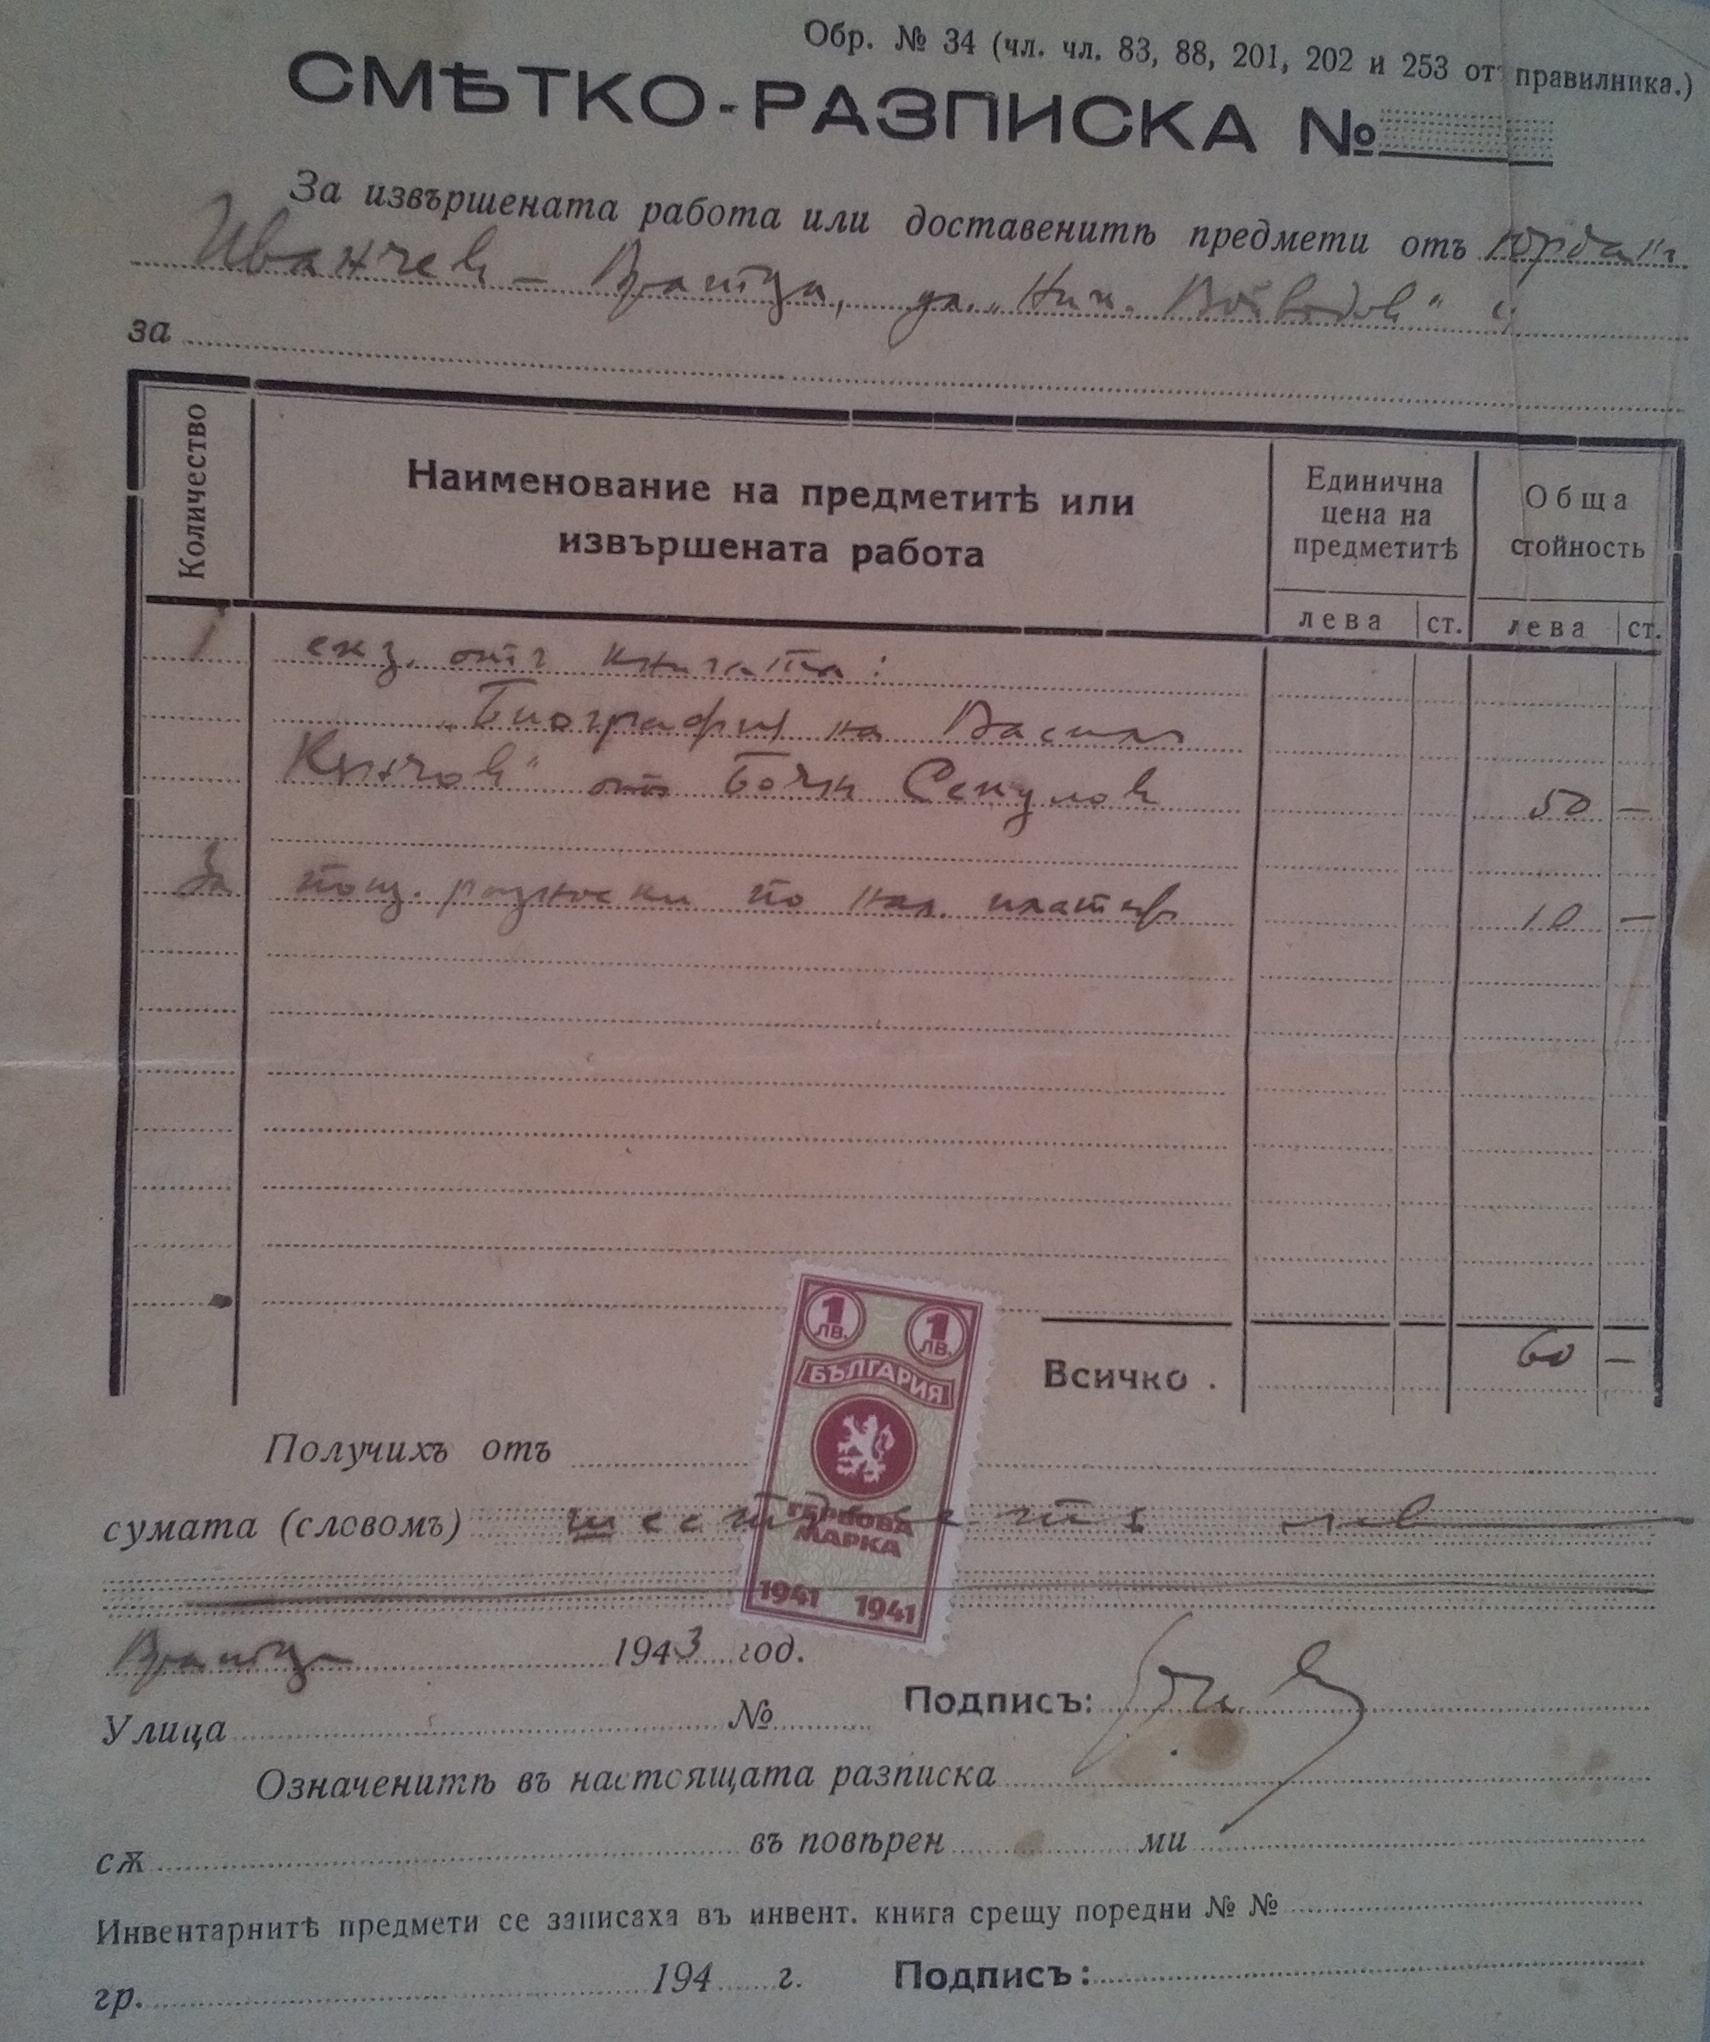 Обр. № 34 (чл. чл. 83, 88, 201, 202 и 253 отъ правилника.)
СМѢТКО-РАЗПИСКА №
За извършената работа или доставенитѣ предмети отъ Юрданъ
Иванчевъ – Вратца, ул. „Ник. Войводовъ“
за
Количество
Наименование на предметитѣ или
извършената работа
Единична
цена на
предметитѣ
Обща
стойность
лева ст. лева ст.
1 екз. отъ книгата:
„Биография на Василъ
Кънчовъ“ отъ Боянъ Секуловъ 50 –
За пощ. разноски по нал. платеж 10 –
1 ЛВ. 1 ЛВ.
БЪЛГАРИЯ
Всичко . 60 –
Получихъ отъ
сумата (словомъ) шестдесетъ лв
ГЕРБОВА
МАРКА
1941 1941
Вратца 1943 год.
Подписъ:
Улица №
Означенитѣ въ настоящата разписка
сѫ въ повѣрен ми
Инвентарнитѣ предмети се записаха въ инвент. книга срещу поредни № №
гр. 194 г. Подписъ: